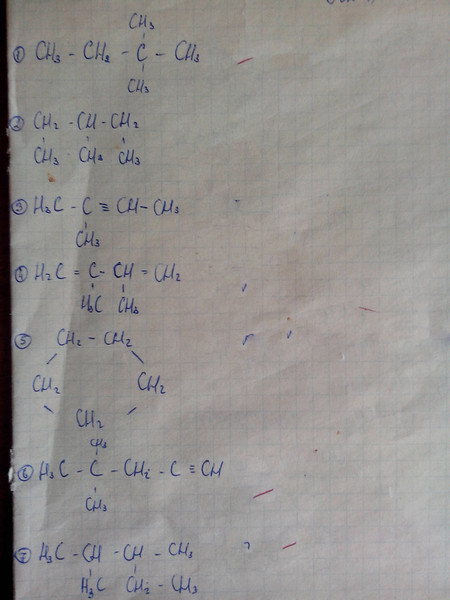 CH₃
① CH₃ - CH₂ - C - CH₃
CH₃
② CH₂ - CH - CH₂
CH₃ CH₃ CH₃
③ H₃C - C ≡ CH - CH₃
CH₃
④ H₂C = C - CH = CH₂
H₃C CH₃
⑤ CH₂ - CH₂
CH₂ CH₂
CH₂
CH₃
⑥ H₃C - C - CH₂ - C ≡ CH
CH₃
⑦ H₃C - CH - CH - CH₃
H₃C CH₂ - CH₃